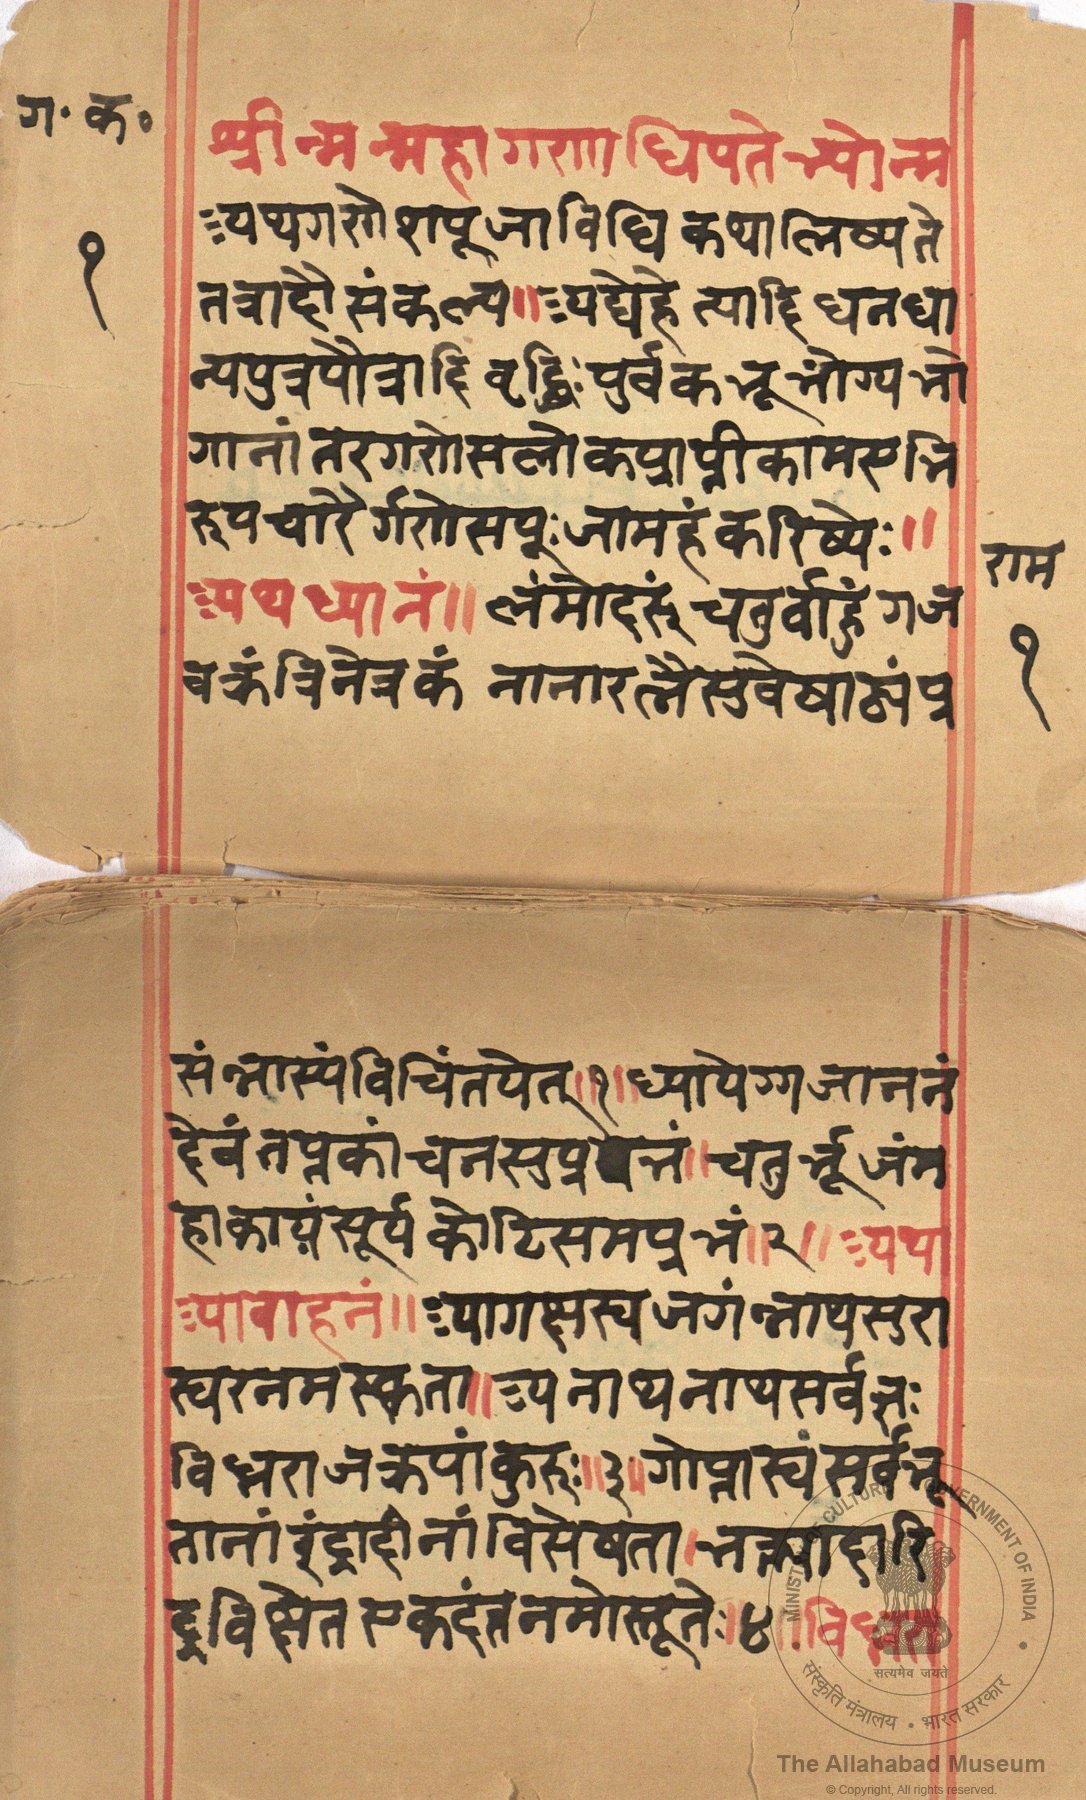 ग॰ क॰
१
श्रीन्मन्महागणाधिपतेभ्योन्म
अथगणेशपूजाविधि कथालिष्यते
तत्रादौ संकल्प॥ अद्येहे त्यादि धनधा
न्यपुत्रपौत्रादि वृद्धिः पुर्वक भूभोग्य भो
गानां तरगणेसलोकप्राप्तीकामसभि
रूपचारैर्गणेसपूःजामहंकरिष्येः॥
अथ ध्यानं॥ लंमोदरूं चतुर्वाहुं गज
वक्रंत्रिनेत्रकं नानारत्नैसुवेषाढ्यंप्र
राम
१
संन्नास्यंविचिंतयेत्॥१॥ध्यायेग्गजाननं
देवंतप्तकांचनसुप्रभं॥चतुर्भूजंम
हाकायंसूर्यकोटिसमप्रभं॥२॥ अथा
आवाहनं॥ आगछस्वजगंन्नाथसुरा
स्वरनमस्कृता॥ अनाथनाथसर्वज्ञः
विध्नराजक्रेपांकुरुः॥३॥गोप्तास्वंसर्वभू
तानां रुंद्रादीनां विसेषता।
द्रविछेत एकदंतनमोस्तूतेः॥४
MINISTRY OF CULTURE GOVERNMENT OF INDIA
सत्यमेव जयते
संस्कृति मंत्रालय • भारत सरकार
The Allahabad Museum
© Copyright, All rights reserved.